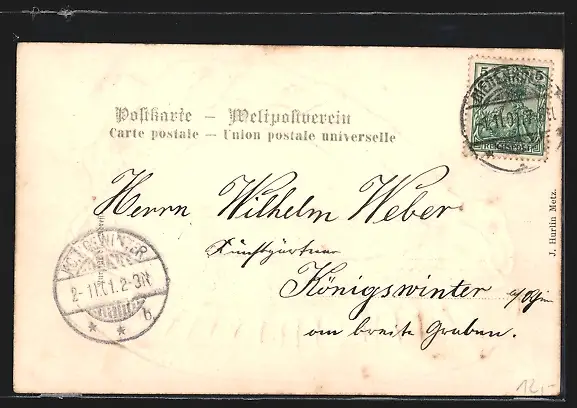 Postkarte – Weltpostverein
Carte postale – Union postale universelle
5 5
REICHSPOST
J. Hurlin Metz.
Herrn Wilhelm Weber
Kunstgärtner
Königswinter a/Rhein
am breite Graben.
KOENIGSWINTER
2-11.01.2-3N
* * b
12,-